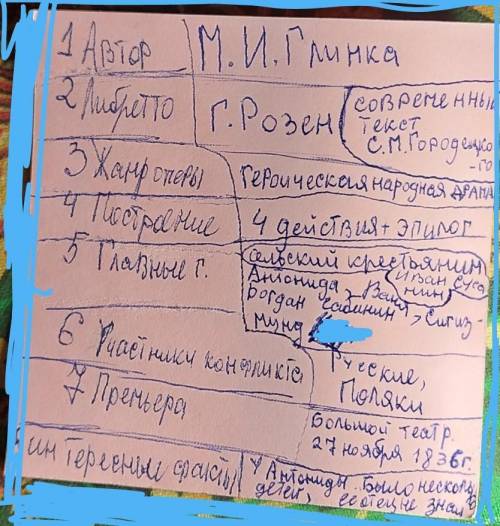 1 Автор М. И. Глинка
2 Либретто Г. Розен
современный
текст
С. М. Городецко
-го
3 Жанр оперы героическая народная драма
4 Построение 4 действия + эпилог
5 Главные г. сельский крестьянин
Иван Суса
нин
Антонида, Ваня
Богдан Сабинин, Сигиз
мунд
6 Участники конфликта Русские,
Поляки
7 Премьера Большой театр.
27 ноября 1836г.
интересные факты У Антониды было несколь
детей, её отец не знал